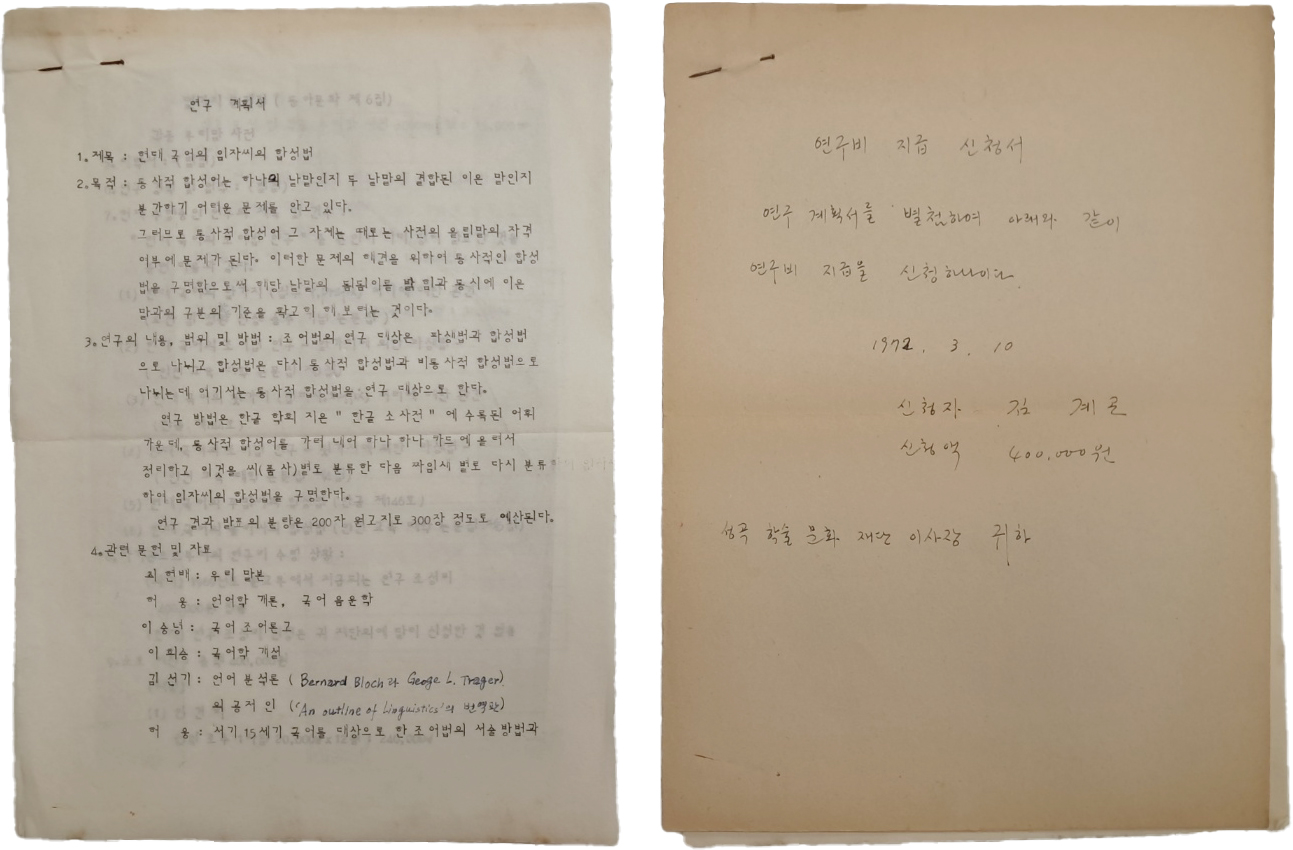 연구 계획서
1. 제목 : 현대 국어의 임자씨의 합성법
2. 목적 : 통사적 합성어는 하나의 낱말인지 두 낱말의 결합된 이은 말인지
분간하기 어려운 문제를 안고 있다.
그러므로 통사적 합성어 그 자체는 때로는 사전의 올림말의 자격
이부에 문제가 된다. 이러한 문제의 해결을 위하여 통사적인 합성
법을 구명함으로써 해당 낱말의 됨됨이를 밝힘과 동시에 이은
말과의 구분의 기준을 확고히 해 보려는 것이다.
3. 연구의 내용, 범위 및 방법 : 조어법의 연구 대상은 파생법과 합성법
으로 나뉘고 합성법은 다시 통사적 합성법과 비통사적 합성법으로
나뉘는데 여기서는 통사적 합성법을 연구 대상으로 한다.
연구 방법은 한글 학회 지은 " 한글 소사전 " 에 수록된 어휘
가운데, 통사적 합성어를 가려 내어 하나 하나 카드에 올려서
정리하고 이것을 씨(품사)별로 분류한 다음 짜임새 별로 다시 분류
하여 임자씨의 합성법을 구명한다.
연구 결과 발표의 분량은 200자 원고지로 300장 정도로 예산된다.
4. 관련 문헌 및 자료
최 현배 : 우리 말본
허 웅 : 언어학 개론, 국어 음운학
이 숭녕 : 국어 조어론고
이 희승 : 국어학 개설
김 선기 : 언어 분석론 ( Bernard Bloch과 Geoge L. Trager)
의 공저 인 ('An outline of Linguistics'의 번역판)
허 웅 : 서기 15세기 국어를 대상으로 한 조어법의 서술 방법과
연구비 지급 신청서
연구 계획서를 별첨하여 아래와 같이
연구비 지급을 신청하나이다.
1972. 3. 10
신청자 김 계곤
신청액 400,000원
성곡 학술 문화 재단 이사장 귀하